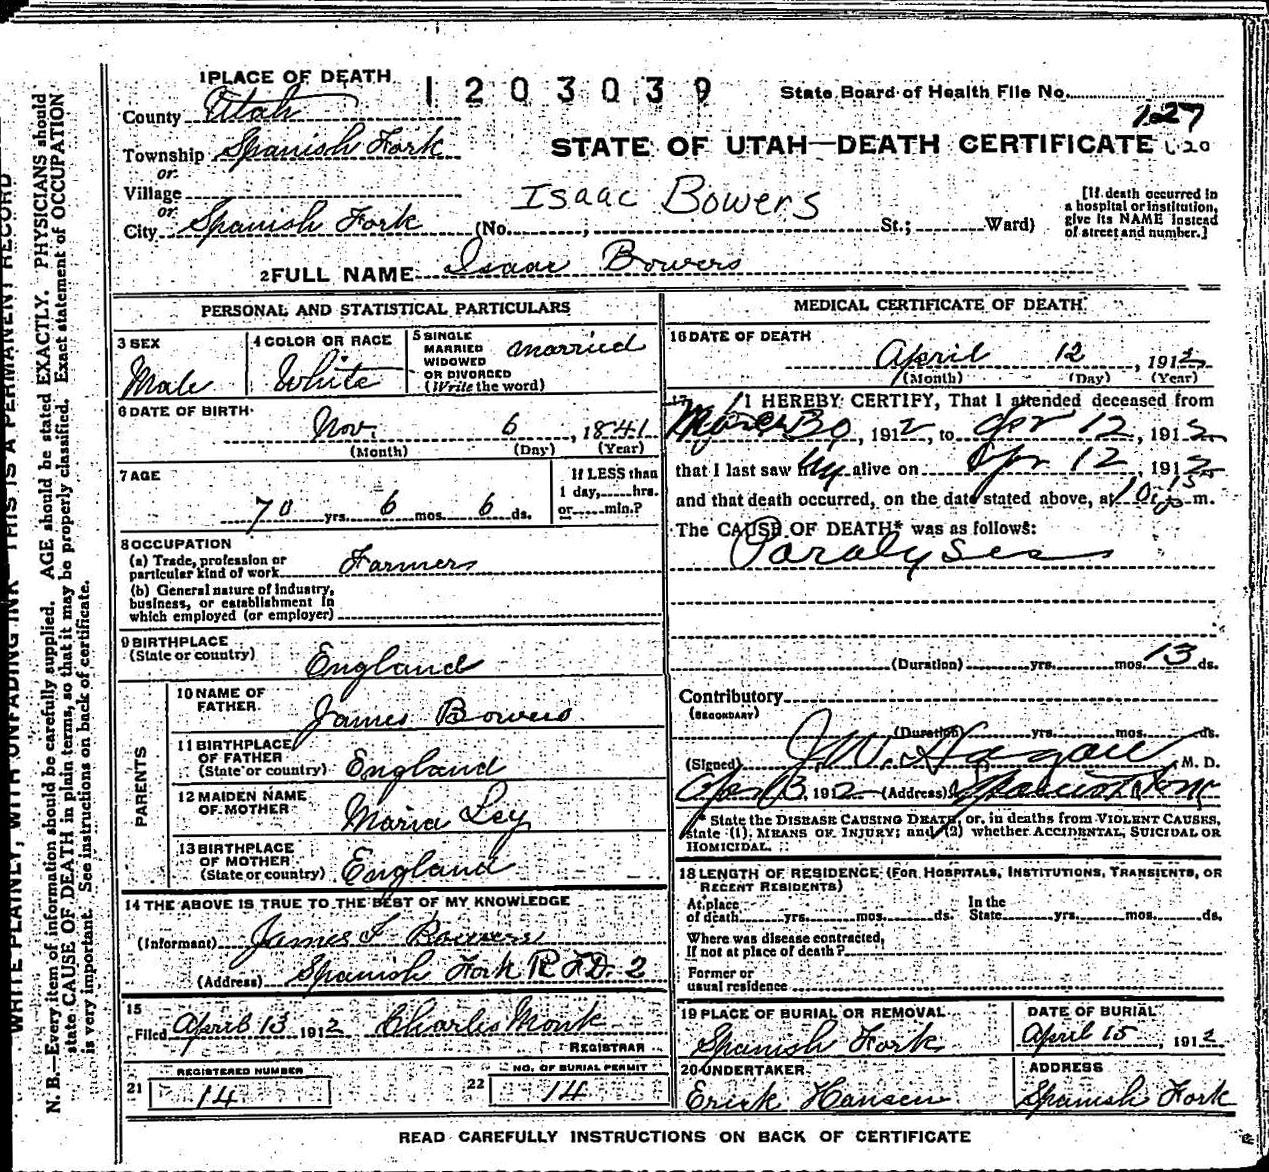 1 PLACE OF DEATH
1203039
State Board of Health File No.
127
County Utah
Township Spanish Fork
or
Village
or
City Spanish Fork (No. ; St.; Ward)
STATE OF UTAH—DEATH CERTIFICATE
Isaac Bowers
[If death occurred in
a hospital or institution,
give its NAME instead
of street and number.]
2 FULL NAME Isaac Bowers
PERSONAL AND STATISTICAL PARTICULARS
3 SEX
Male
4 COLOR OR RACE
White
5 SINGLE
MARRIED
WIDOWED
OR DIVORCED
(Write the word)
married
6 DATE OF BIRTH
Nov. 6, 1841
(Month) (Day) (Year)
7 AGE
70 yrs. 6 mos. 6 ds.
If LESS than
1 day, hrs.
or min.?
8 OCCUPATION
(a) Trade, profession or
particular kind of work Farmers
(b) General nature of Industry,
business, or establishment in
which employed (or employer)
9 BIRTHPLACE
(State or country)
England
PARENTS
10 NAME OF
FATHER
James Bowers
11 BIRTHPLACE
OF FATHER
(State or country) England
12 MAIDEN NAME
OF MOTHER
Maria Ley
13 BIRTHPLACE
OF MOTHER
(State or country) England
14 THE ABOVE IS TRUE TO THE BEST OF MY KNOWLEDGE
(Informant) James F Bowers
(Address) Spanish Fork R F D. 2
15
Filed April 13 1912 Charles Monk
REGISTRAR
21 REGISTERED NUMBER
14
22 NO. OF BURIAL PERMIT
14
MEDICAL CERTIFICATE OF DEATH
16 DATE OF DEATH
April 12, 1912
(Month) (Day) (Year)
17 I HEREBY CERTIFY, That I attended deceased from
30, 1912, to Apr 12, 1912
that I last saw alive on Apr 12, 1912
and that death occurred, on the date stated above, at m.
The CAUSE OF DEATH* was as follows:
Paralyses
(Duration) yrs. mos. 13 ds.
Contributory
(SECONDARY)
(Duration) yrs. mos. ds.
(Signed) J.W. Hagan, M. D.
Apr 13, 1912 (Address) Spanish Fork
* State the DISEASE CAUSING DEATH, or, in deaths from VIOLENT CAUSES,
state (1) MEANS OF INJURY; and (2) whether ACCIDENTAL, SUICIDAL OR
HOMICIDAL.
18 LENGTH OF RESIDENCE (FOR HOSPITALS, INSTITUTIONS, TRANSIENTS, OR
RECENT RESIDENTS)
At place
of death yrs. mos. ds.
In the
State yrs. mos. ds.
Where was disease contracted,
If not at place of death?
Former or
usual residence
19 PLACE OF BURIAL OR REMOVAL
Spanish Fork
DATE OF BURIAL
April 15, 1912
20 UNDERTAKER
Erick Hansen
ADDRESS
Spanish Fork
READ CAREFULLY INSTRUCTIONS ON BACK OF CERTIFICATE
WRITE PLAINLY, WITH UNFADING INK—THIS IS A PERMANENT RECORD
N. B.—Every item of information should be carefully supplied. AGE should be stated EXACTLY. PHYSICIANS should
state CAUSE OF DEATH in plain terms, so that it may be properly classified. Exact statement of OCCUPATION
is very important. See instructions on back of certificate.